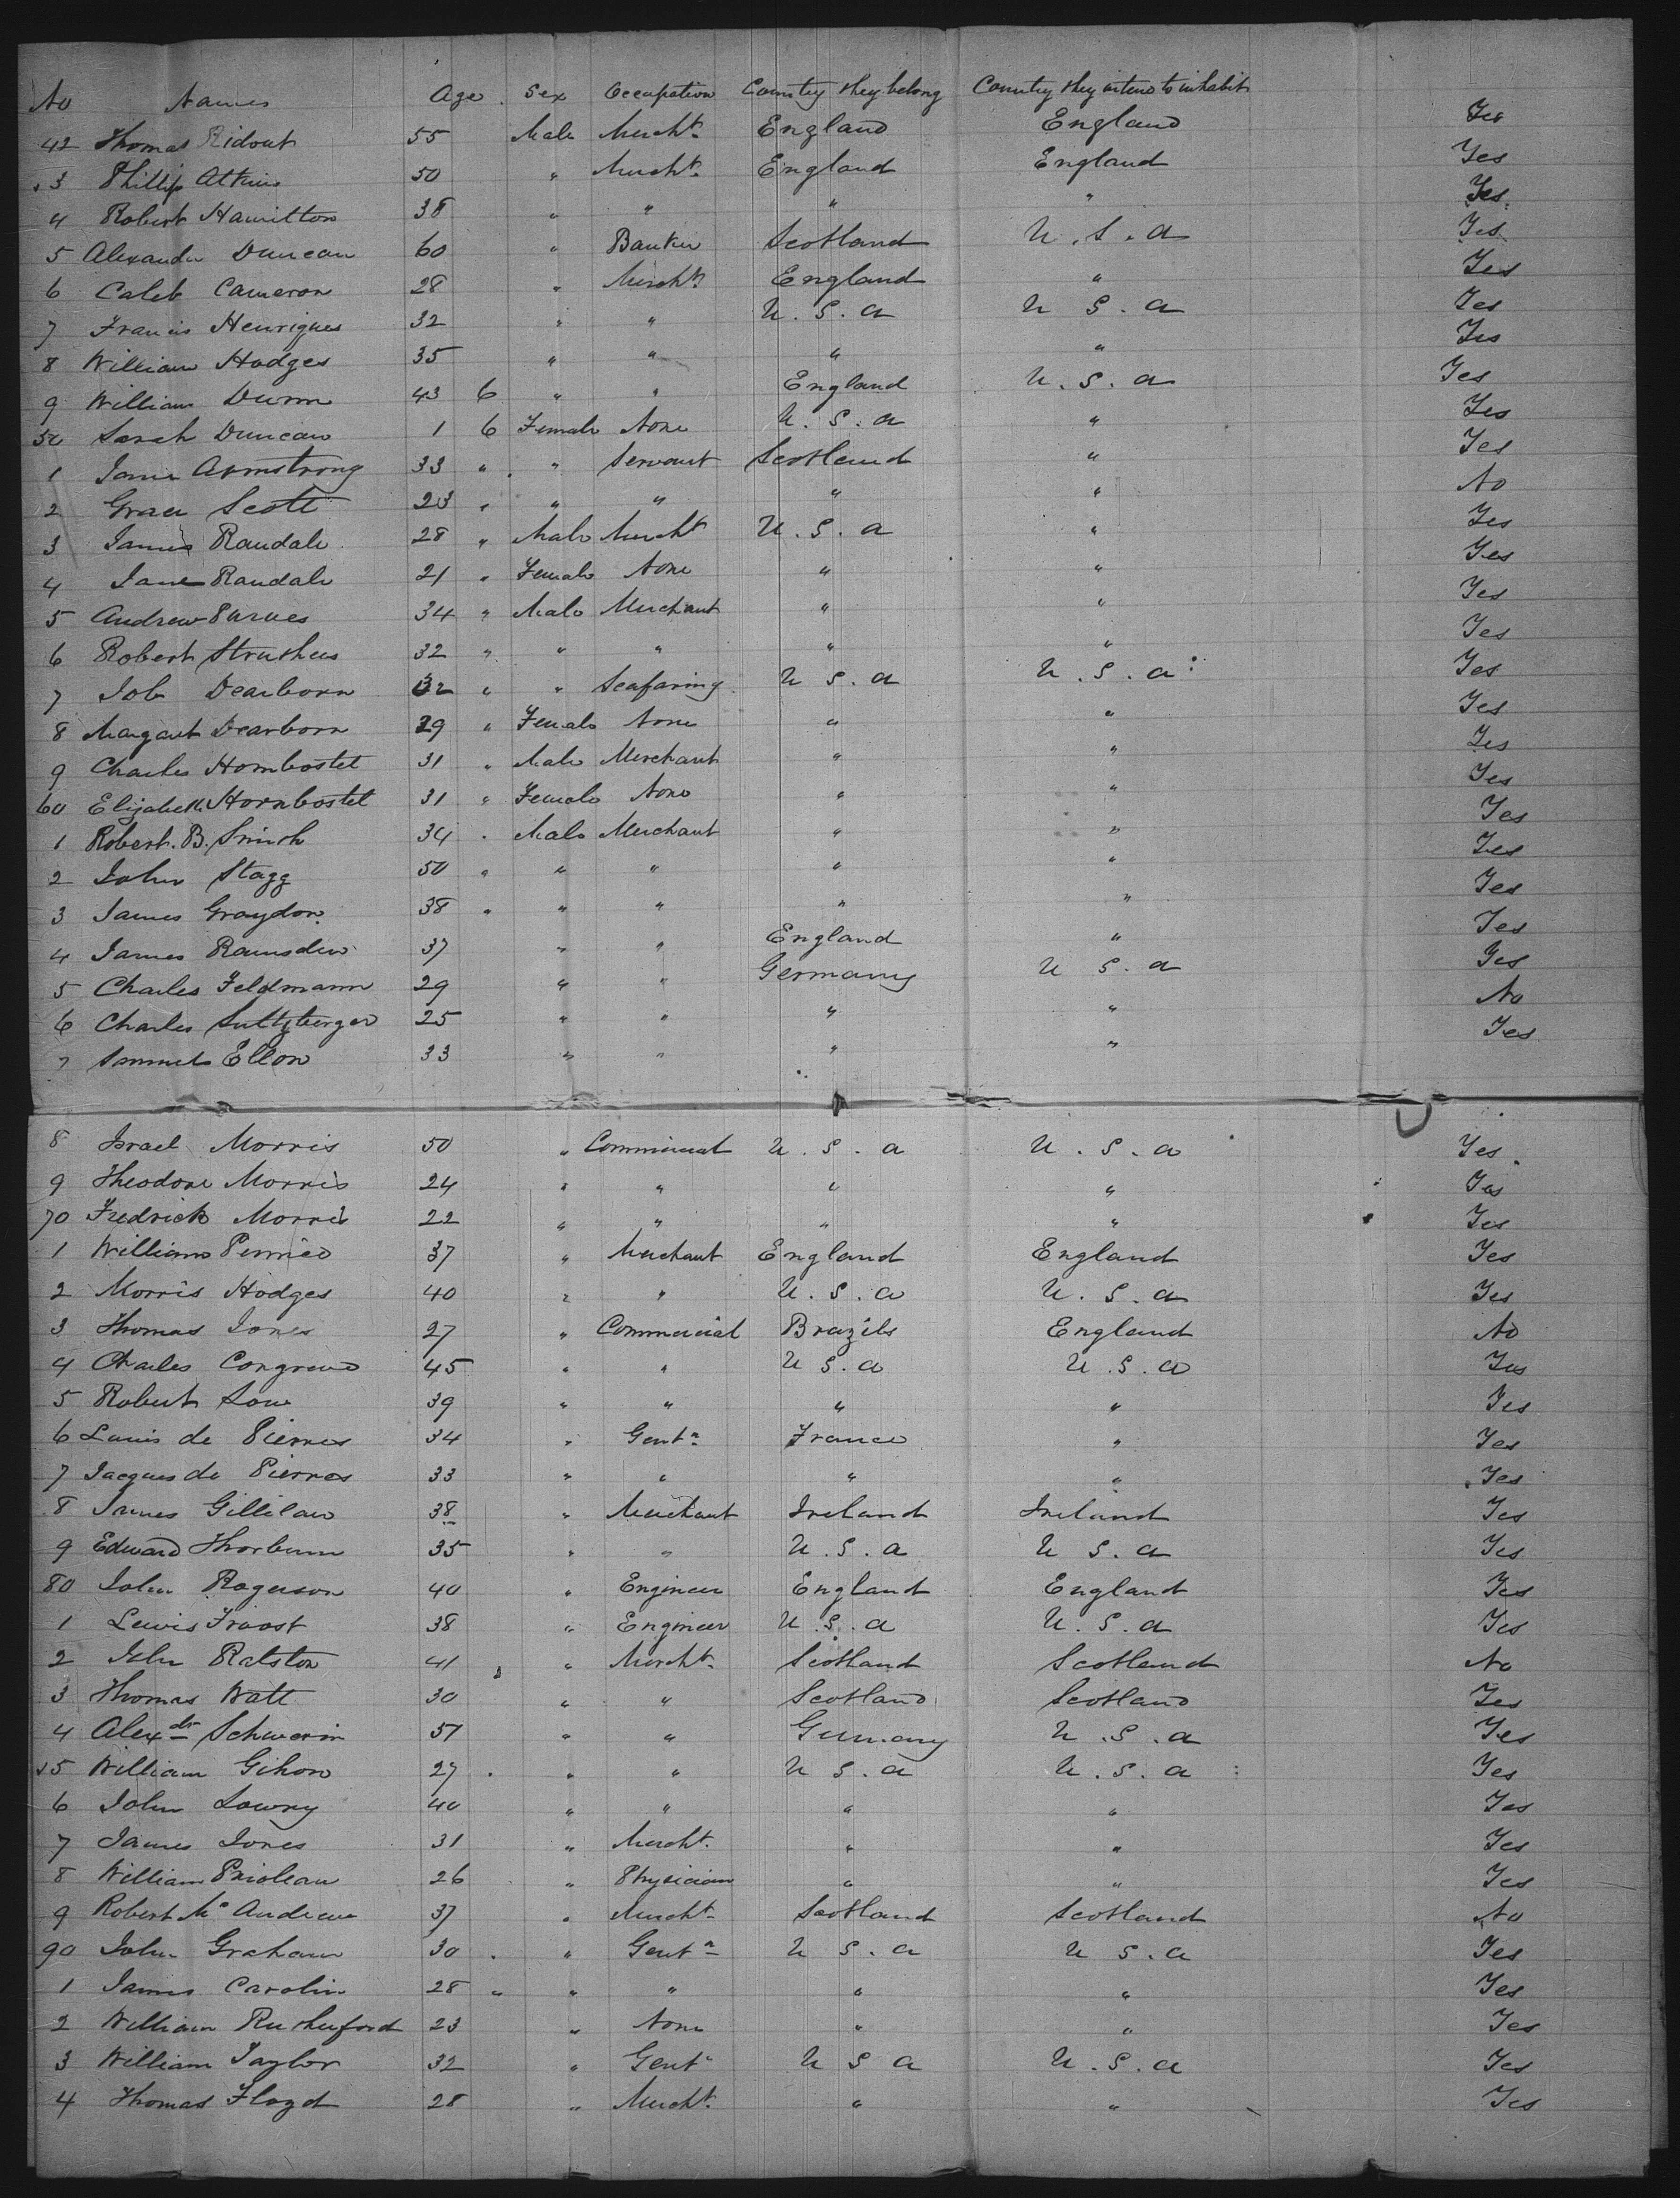 No Names Age Sex Occupation Country they belong Country they intend to inhabit
42 Thomas Ridout 55 Male Mercht. England England Yes
3 Phillip Atkins 50 " Mercht. England England Yes
4 Robert Hamilton 38 " " " " Yes
5 Alexander Duncan 60 " Banker Scotland U.S.A Yes
6 Caleb Cameron 28 " Mercht. England " Yes
7 Francis Henriques 32 " " U.S.A U S.A Yes
8 William Hodges 35 " " " " Yes
9 William Dunn 43 6 " " England U.S.A Yes
50 Sarah Duncan 1 6 Female None U.S.A " Yes
1 Jane Armstrong 33 " " Servant Scotland " Yes
2 Grace Scott 23 " " " " " No
3 James Randale 28 " Male Mercht U.S.A " Yes
4 Jane Randale 21 " Female None " " Yes
5 Andrew 34 " Male Merchant " " Yes
6 Robert Struthers 32 " " " " " Yes
7 Job Dearborn 32 " " Seafaring U S.A U.S.A Yes
8 Margaret Dearborn 29 " Female None " " Yes
9 Charles Hornbostel 31 " Male Merchant " " Yes
60 Elizabeth Hornbostel 31 " Female None " " Yes
1 Robert. B. Smith 34 . Male Merchant " " Yes
2 John Stagg 50 " " " " " Yes
3 James Graydon 38 " " " " " Yes
4 James Ramsden 37 " " England " Yes
5 Charles Feldmann 29 " " Germany U S.A Yes
6 Charles Sultzberger 25 " " " " No
7 Samuel Ellon 33 " " " " Yes
8 Israel Morris 50 " Commercial U.S.A U.S.A Yes
9 Theodore Morris 24 " " " " Yes
70 Fredrick Morris 22 " " " " Yes
1 William 37 " Merchant England England Yes
2 Morris Hodges 40 " " U.S.A U.S.A Yes
3 Thomas Jones 27 " Commercial Brazils England No
4 Charles Congreve 45 " " U S.A U.S.A Yes
5 Robert Low 39 " " " " Yes
6 Louis de Pierres 34 " Gentn France " Yes
7 Jacques de Pierres 33 " " " " Yes
8 James Gillilan 38 " Merchant Ireland Ireland Yes
9 Edward Thorburn 35 " " U.S.A U S.A Yes
80 John Rogerson 40 " Engineer England England Yes
1 Lewis 38 " Engineer U.S.A U.S.A Yes
2 John Ralston 41 " Mercht. Scotland Scotland No
3 Thomas Watt 30 " " Scotland Scotland Yes
4 Alexdr Schwerin 51 " " Germany U.S.A Yes
5 William Gihon 27 " " U S.A U.S.A Yes
6 John Lowry 40 " " " " Yes
7 James Jones 31 " Mercht. " " Yes
8 William Prioleau 26 " Physician " " Yes
9 Robert Mc Andrew 37 " Mercht. Scotland Scotland No
90 John Graham 30 " Gentn U S.A U S.A Yes
1 James Carolin 28 " " " " " Yes
2 William Rutherford 23 " None " " Yes
3 William Taylor 32 " Gentn U S A U.S.A Yes
4 Thomas Floyd 28 " Mercht. " " Yes